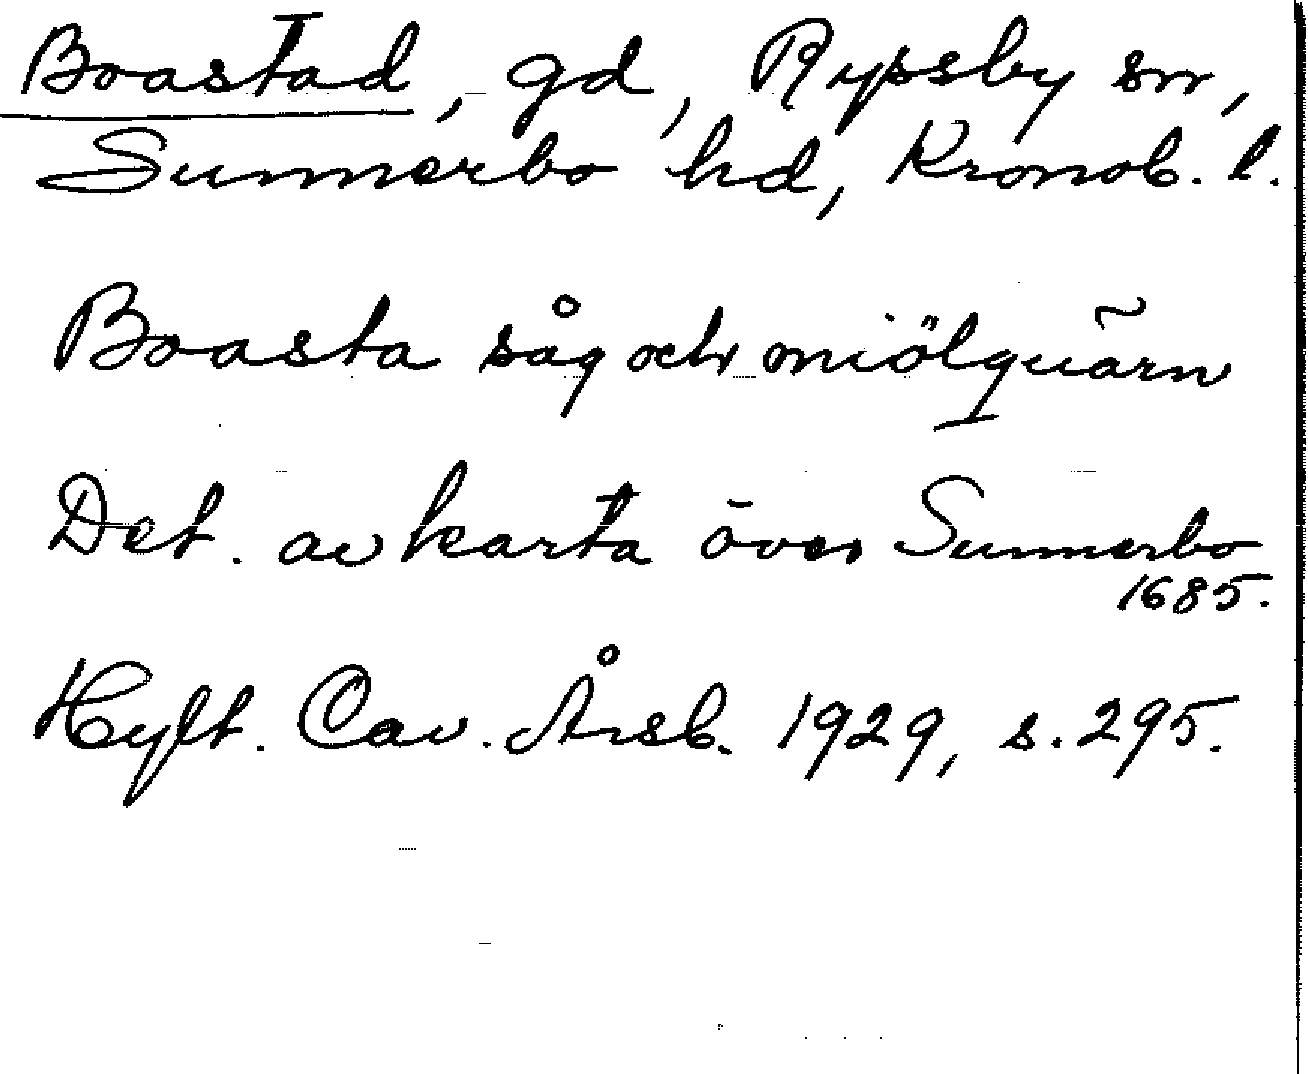 Boastad, gd, Ryssby sn,
Sunnerbo hd, Kronob. l.
Boasta såg och miölquärn
Det. av karta över Sunnerbo
1685.
Hylt. Cav. Årsb. 1929, s. 295.